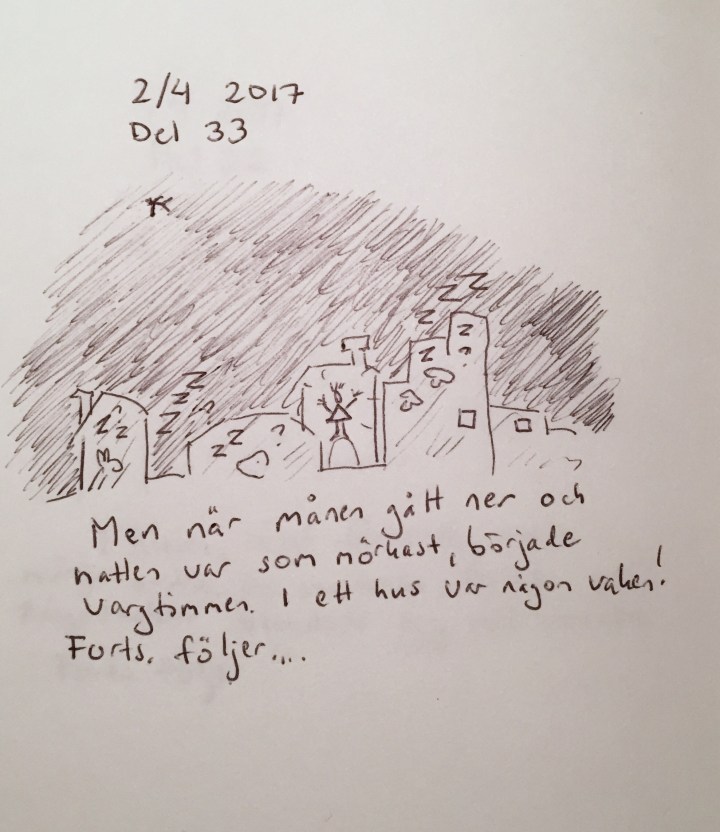 2/4 2017
Del 33
z z z
z z z
z z
z z z ?
z z ?
z ?
z
z z
Men när månen gått ner och
natten var som mörkast, började
vargtimmen. I ett hus var någon vaken!
Forts. följer....